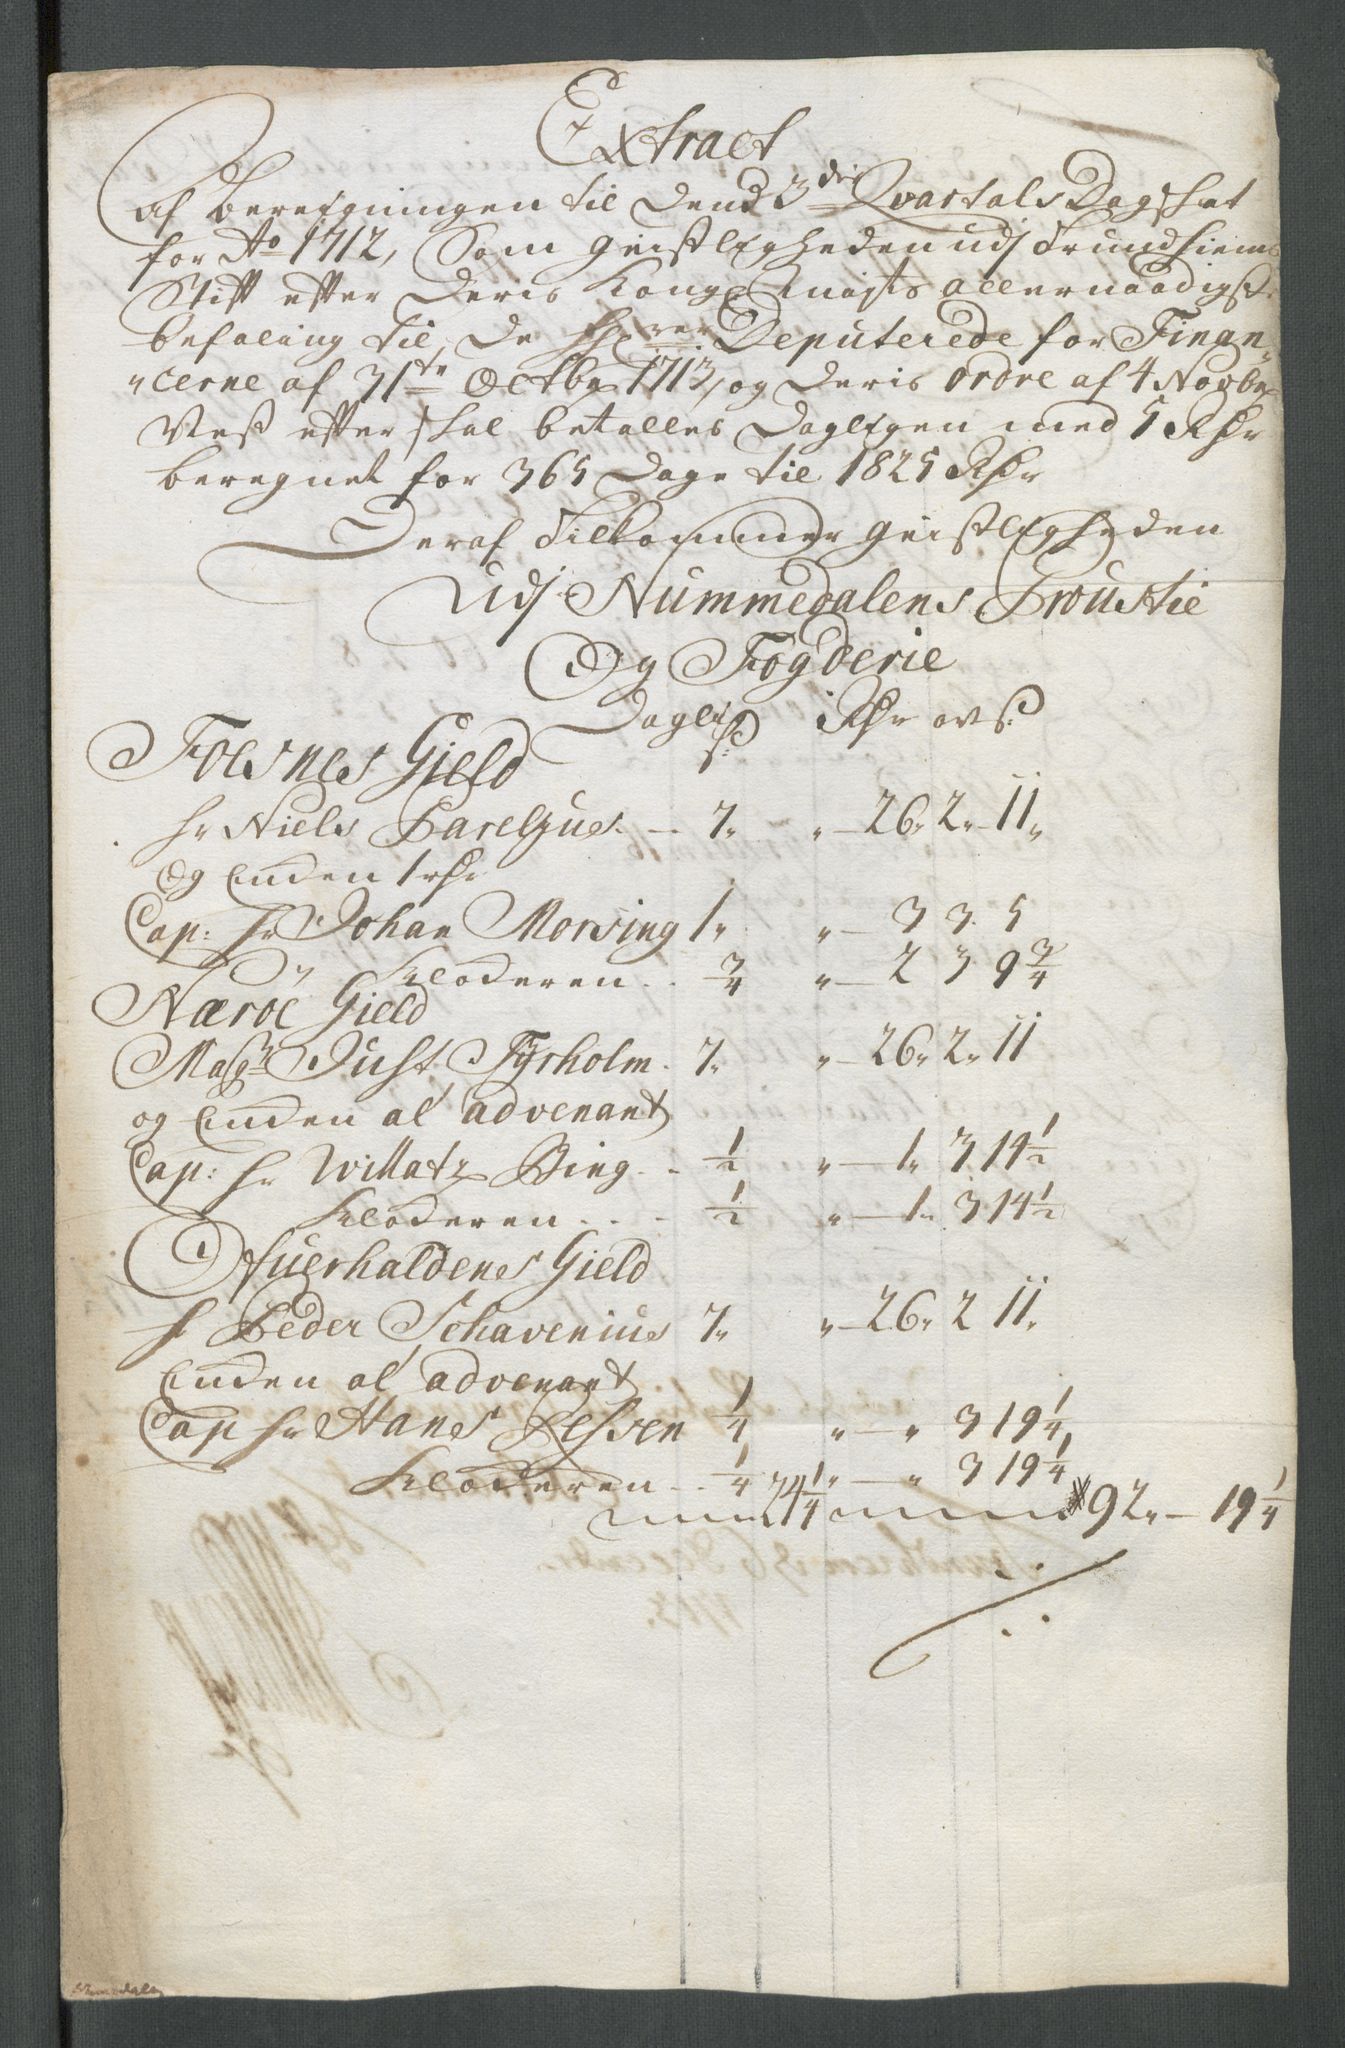 Extract
af beregningen til dend 3die Qvartals Dag skat
for Ao 1712, Som geistligheden udj Trundhiems
Stift efter Deris Kongl Mayts allernaadigste
befaling til De HHerrer Deputerede for Finan-
cerne af 31te Octbr 1713, og deris ordre af 4 Novbr
Nest efter skal betalles Dagligen med 5 Rdr
beregnet for 365 Dage til 1825 Rdr
Deraf Tilkommer geistligheden
Udj Nummedalens Proustie
Og Fogderie
Daglig Rdr ort ß:
ß:
Foesnes Gield
hr Niels Parelzues. — 7„ „—26„ 2„ 11„
Og Enden 1 rdr
Cap: hr Johan Morsing 1„ „— 3 3. 5
Klocheren . . 3/4 „— 2 3 9 3/4
Næröe Gield
Magr Just Tyrholm. 7„ „—26„ 2„ 11
og Enden al advenant
Cap: hr Willatz Bing. - 1/2 „— 1„ 3 14 1/2
Klocheren . . . 1/2 „— 1„ 3 14 1/2
Ofuerhaldenes Gield
hr Peder Schavenius 7„ „—26„ 2 11„
Enden al advenant
Cap hr Hans Jessen 1/4 „— „ 3 19 1/4
Klocheren . . 1/4 „— „ 3 19 1/4
24 1/4 92„ — 19 1/4